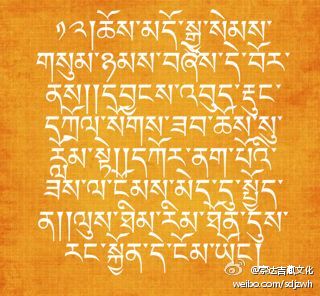 ༡༢།ཆོས་མདོ་སྒྱུ་སེམས་
གསུམ་ཉམས་བཞེས་དེ་བོར་
ནས།།དབྱངས་འབུད་རྡུང་
དཀྲོལ་སོགས་ཟབ་ཆོས་སུ་
རློམ་སྟེ།།དཀོར་ནག་པོའི་
ཟས་ལ་ངོམས་མེད་དུ་སྤྱོད་
ན།།ལུས་ཐིམ་རིམ་ཐོན་དུས་
རང་སྐྱོན་དེ་ངོམ་ཡང་།
@索达吉藏文化
weibo.com/sdjzwh